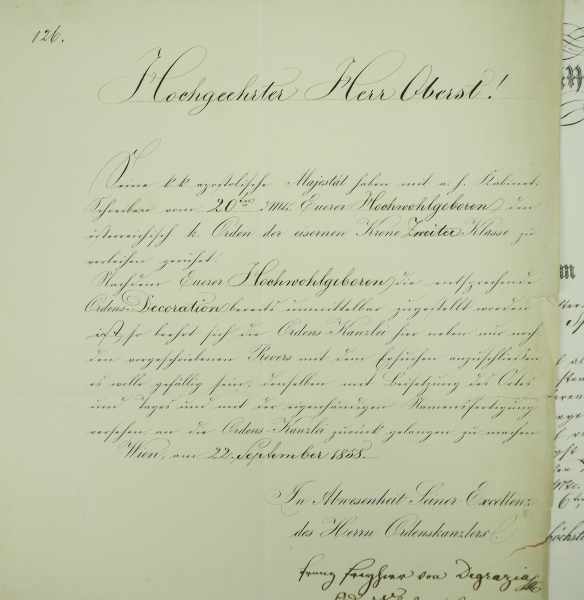 126.
Hochgeehrter Herr Oberst!
Seine k k apostolische Majestät haben mit a. h. Kabinet-
Schreiben vom 20ten d Mts. Euerer Hochwohlgeboren den
österreichisch k. Orden der eisernen Krone Zweiter Klasse zu
verleihen geruht.
Nachdem Euerer Hochwohlgeboren die entsprechende
Ordens-Decoration bereits unmittelbar zugestellt worden
ist, so beehrt sich die Ordens-Kanzlei hier neben nur noch
den vorgeschriebenen Revers mit dem Ersuchen anzuschließen
es wolle gefällig sein, denselben mit Beisetzung des Ortes
und Tages und mit der eigenhändigen Namensfertigung
versehen an die Ordens-Kanzlei zurück gelangen zu machen
Wien, am 22. September 1858.
In Abwesenheit Seiner Excellenz
des Herrn Ordenskanzlers
Franz Freyherr von Degrazia